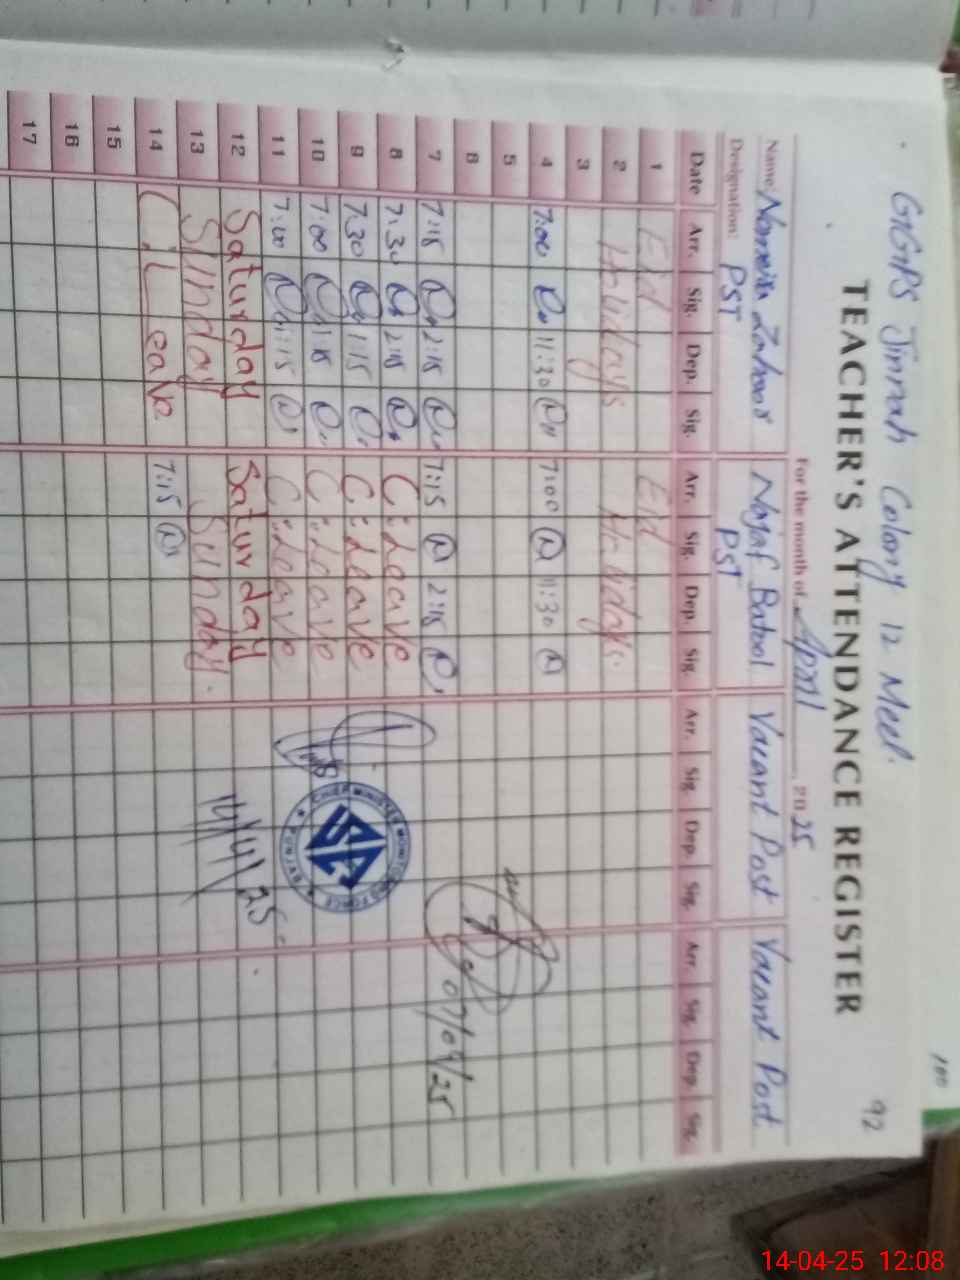 GGPS Jinnah Colony 12 Meel.
92
TEACHER'S ATTENDANCE REGISTER
For the month of April, 2025
Name: Zahoor Najaf Batool Vacant Post Vacant Post
Designation: PST PST
Date Arr. Sig. Dep. Sig. Arr. Sig. Dep. Sig. Arr. Sig. Dep. Sig. Arr. Sig. Dep. Sig.
1 Eid Eid
2 Holidays Holidays
3
4 7:00 11:30 7:00 11:30
5
6
7 7:15 2:15 7:15 2:15
07/04/25
8 7:30 2:15 C.Leave
9 7:30 1:15 C.Leave
10 7:00 1:15 C.Leave
11 7:00 1:15 C.Leave
CHIEF MINISTER MONITORING FORCE
PUNJAB
12 Saturday Saturday
14/4/25
13 Sunday Sunday.
14 C.Leave 7:15
15
16
17
14-04-25 12:08